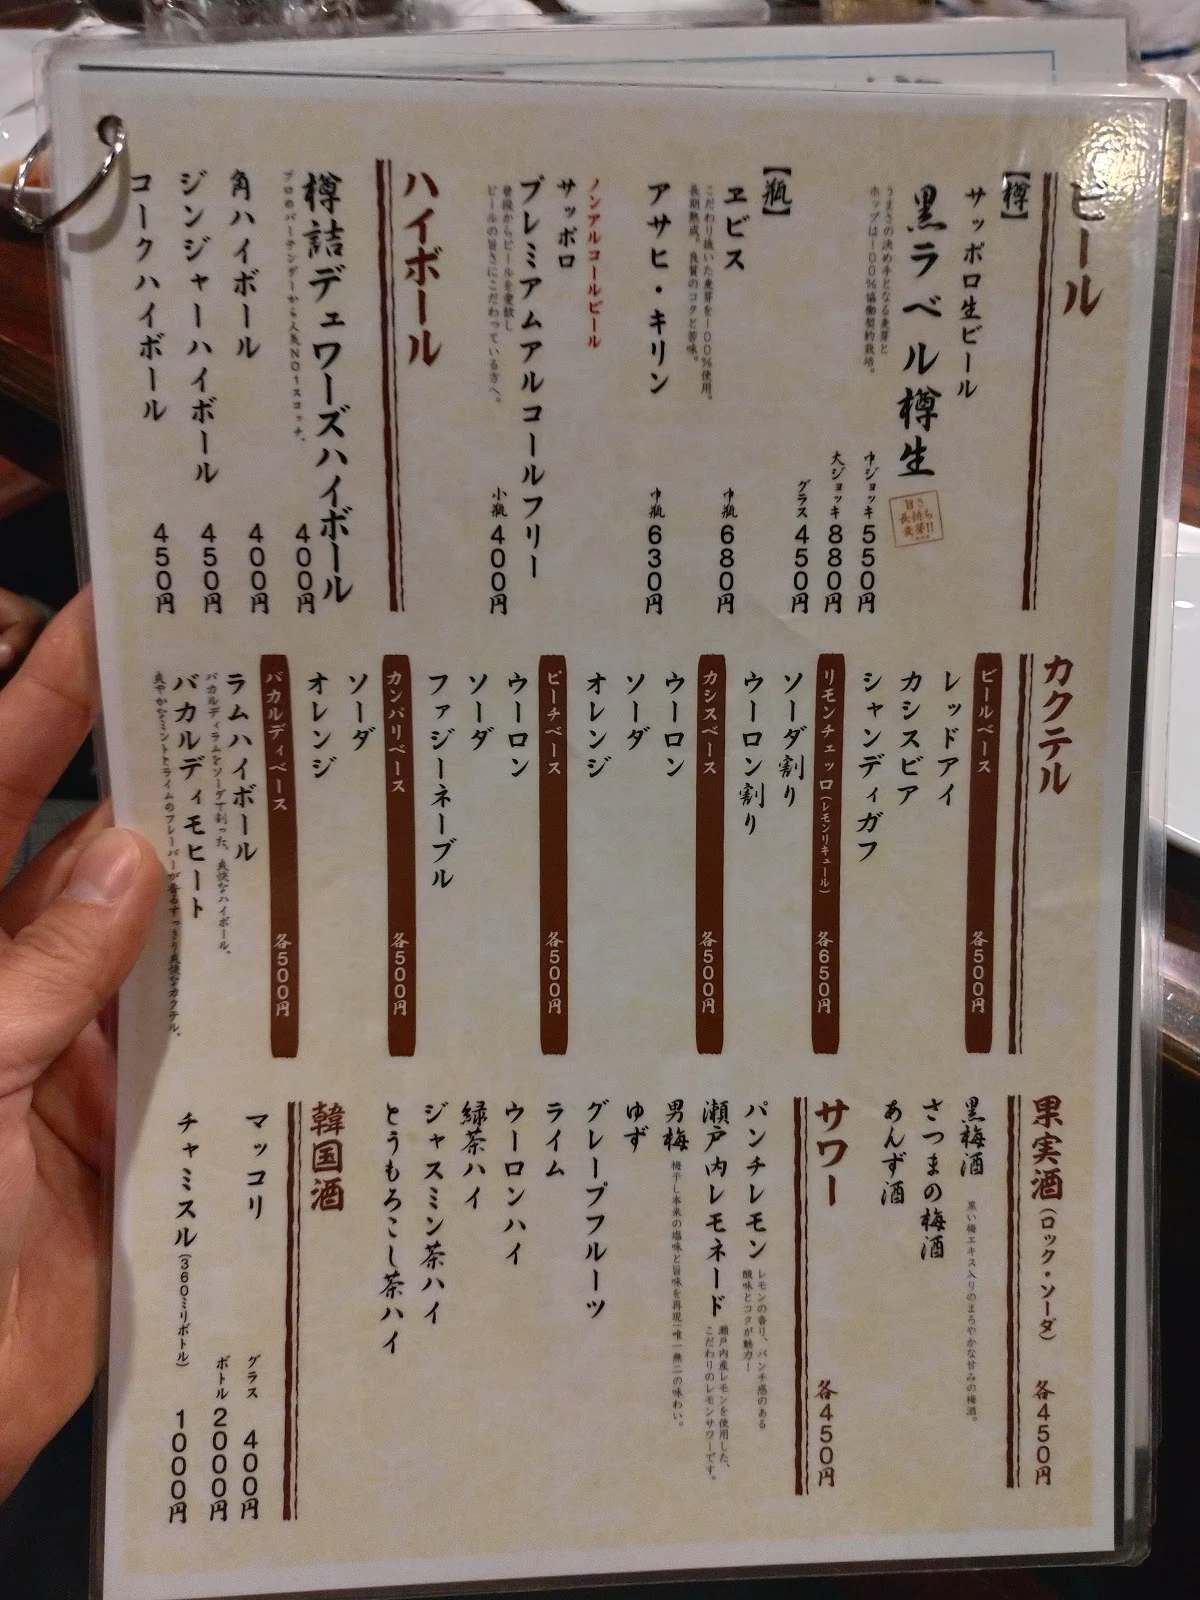 ビール
【樽】
サッポロ生ビール
黒ラベル樽生
うまさの決め手となる麦芽と
ホップは100%協働契約栽培。
中ジョッキ 550円
大ジョッキ 880円
グラス 450円
【瓶】
ヱビス
中瓶 680円
こだわり抜いた麦芽を100%使用。
長期熟成。良質のコクと苦味。
アサヒ・キリン
中瓶 630円
ノンアルコールビール
サッポロ
プレミアムアルコールフリー
普段からビールを愛飲し
ビールの旨さにこだわっている方へ。
小瓶 400円
ハイボール
樽詰デュワーズハイボール
400円
プロのバーテンダーから人気NO1スコッチ。
角ハイボール 400円
ジンジャーハイボール 450円
コークハイボール 450円
カクテル
ビールベース 各500円
レッドアイ
カシスビア
シャンディガフ
リモンチェッロ(レモンリキュール) 各650円
ソーダ割り
ウーロン割り
カシスベース 各500円
ウーロン
ソーダ
オレンジ
ピーチベース 各500円
ウーロン
ソーダ
ファジーネーブル
カンパリベース 各500円
ソーダ
オレンジ
バカルディベース 各500円
ラムハイボール
バカルディラムをソーダで割った、爽快なハイボール。
バカルディモヒート
爽やかなミントとライムのフレーバーが香るすっきり爽快なカクテル。
果実酒(ロック・ソーダ) 各450円
黒梅酒 黒い梅エキス入りのまろやかな甘みの梅酒。
さつまの梅酒
あんず酒
サワー 各450円
パンチレモン
レモンの香り、パンチ感のある
酸味とコクが魅力!
瀬戸内レモネード
瀬戸内産レモンを使用した、
こだわりのレモンサワーです。
男梅 梅干し本来の塩味と旨味を再現「唯一無二の味わい。
ゆず
グレープフルーツ
ライム
ウーロンハイ
緑茶ハイ
ジャスミン茶ハイ
とうもろこし茶ハイ
韓国酒
マッコリ
グラス 400円
ボトル 2000円
チャミスル(360ミリボトル) 1000円